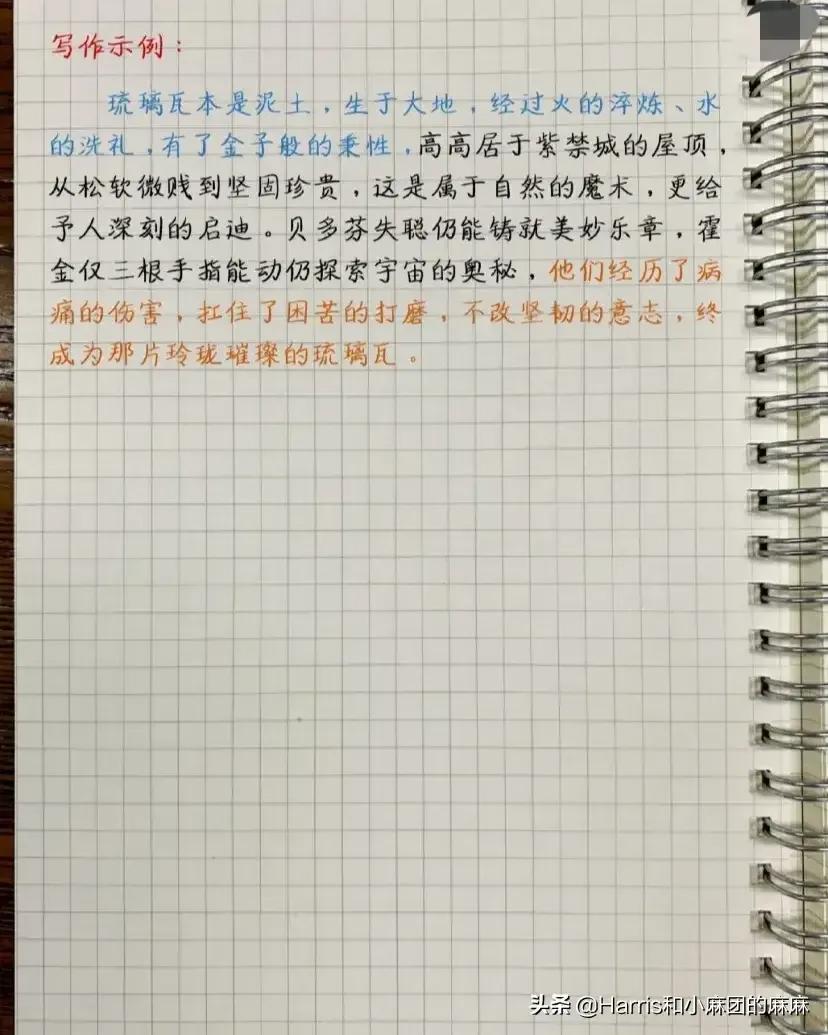 写作示例：
琉璃瓦本是泥土，生于大地，经过火的淬炼、水
的洗礼，有了金子般的秉性，高高居于紫禁城的屋顶，
从松软微贱到坚固珍贵，这是属于自然的魔术，更给
予人深刻的启迪。贝多芬失聪仍能铸就美妙乐章，霍
金仅三根手指能动仍探索宇宙的奥秘，他们经历了病
痛的伤害，扛住了困苦的打磨，不改坚韧的意志，终
成为那片玲珑璀璨的琉璃瓦。
头条 @Harris和小麻团的麻麻